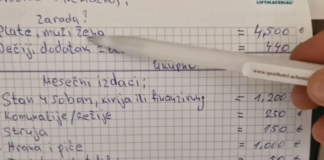 LIFTMATERIAL
Zarada?
Plate, muž i žena = 4,500 €
Dečiji dodatak = 440
Ukupno
Mesečni izdaci:
Stan 4 sobani, kirija ili finansiranje = 1,200 €
Komunalije/Režije = 250 €
Struja = 150 €
Hrana i piće = 1,000 €